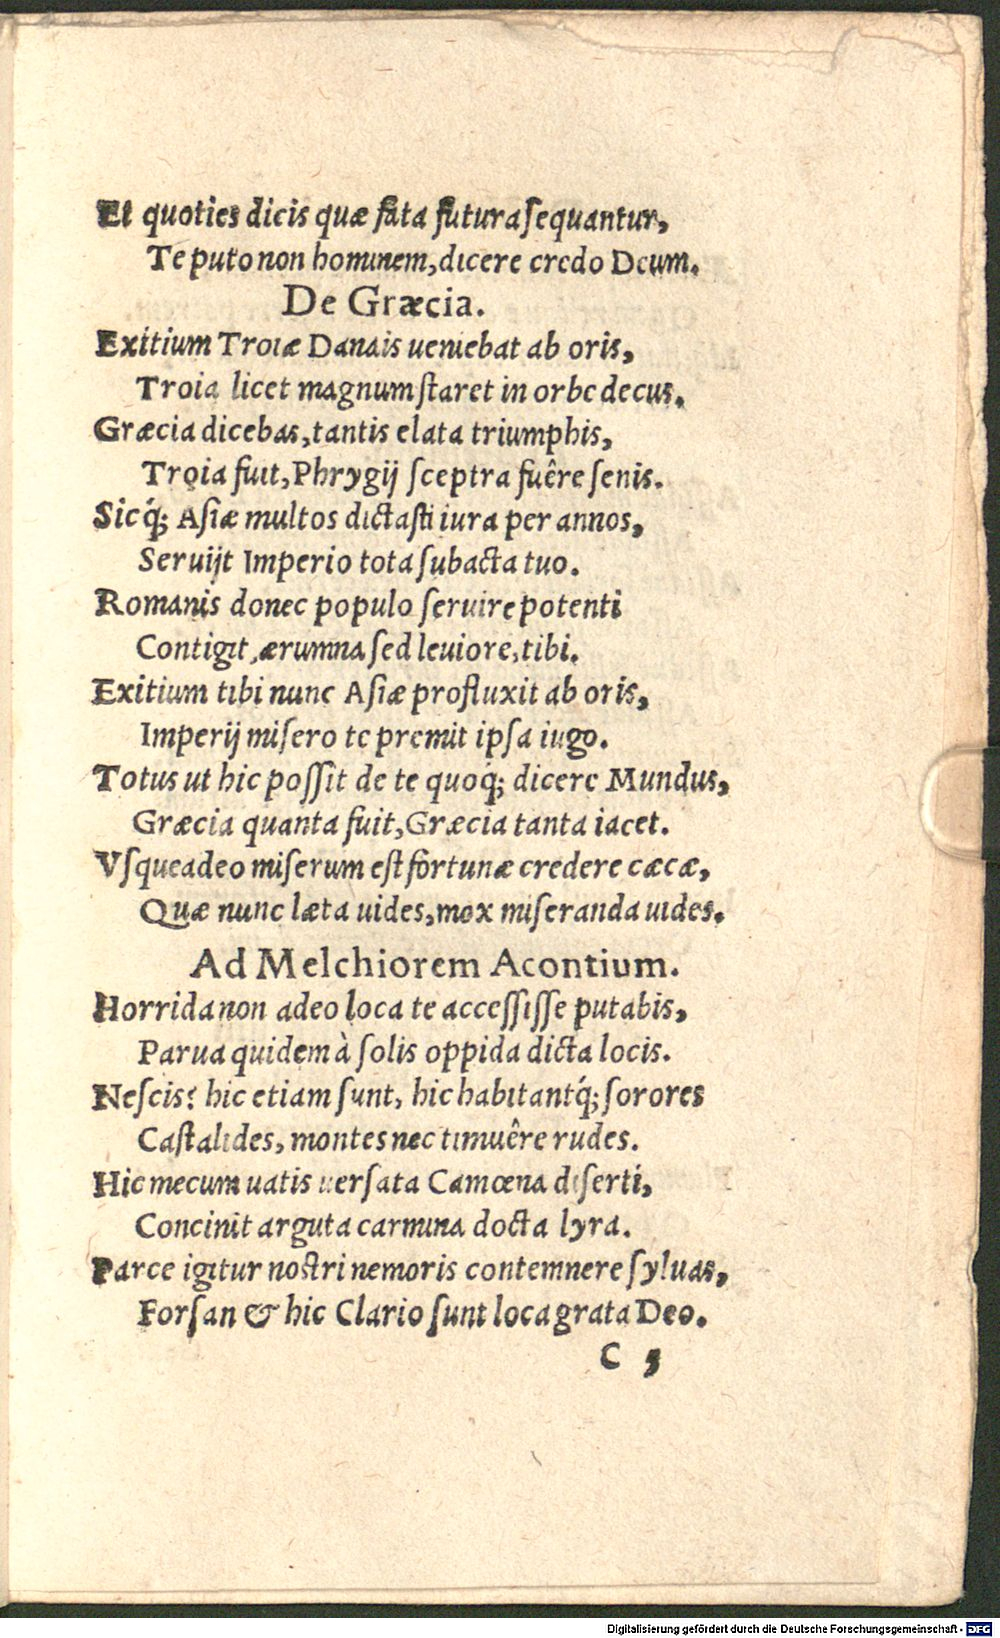 Et quoties dicis quæ fata futura sequantur,
Te puto non hominem, dicere credo Deum.
De Græcia.
Exitium Troiæ Danais ueniebat ab oris,
Troia licet magnum staret in orbe decus.
Græcia dicebas, tantis elata triumphis,
Troia fuit, Phrygij sceptra fuêre senis.
Sicq́; Asiæ multos dictasti iura per annos,
Seruijt Imperio tota subacta tuo.
Romanis donec populo seruire potenti
Contigit, ærumna sed leuiore, tibi.
Exitium tibi nunc Asiæ profluxit ab oris,
Imperij misero te premit ipsa iugo.
Totus ut hic possit de te quoq́; dicere Mundus,
Græcia quanta fuit, Græcia tanta iacet.
Vsqueadeo miserum est fortunæ credere cæcæ,
Quæ nunc læta uides, mox miseranda uides.
Ad Melchiorem Acontium.
Horrida non adeo loca te accessisse putabis,
Parua quidem à solis oppida dicta locis.
Nescis? hic etiam sunt, hic habitantq́; sorores
Castalides, montes nec timuêre rudes.
Hic mecum uatis uersata Camœna diserti,
Concinit arguta carmina docta lyra.
Parce igitur nostri nemoris contemnere syluas,
Forsan & hic Clario sunt loca grata Deo.
C 5
Digitalisierung gefördert durch die Deutsche Forschungsgemeinschaft - DFG